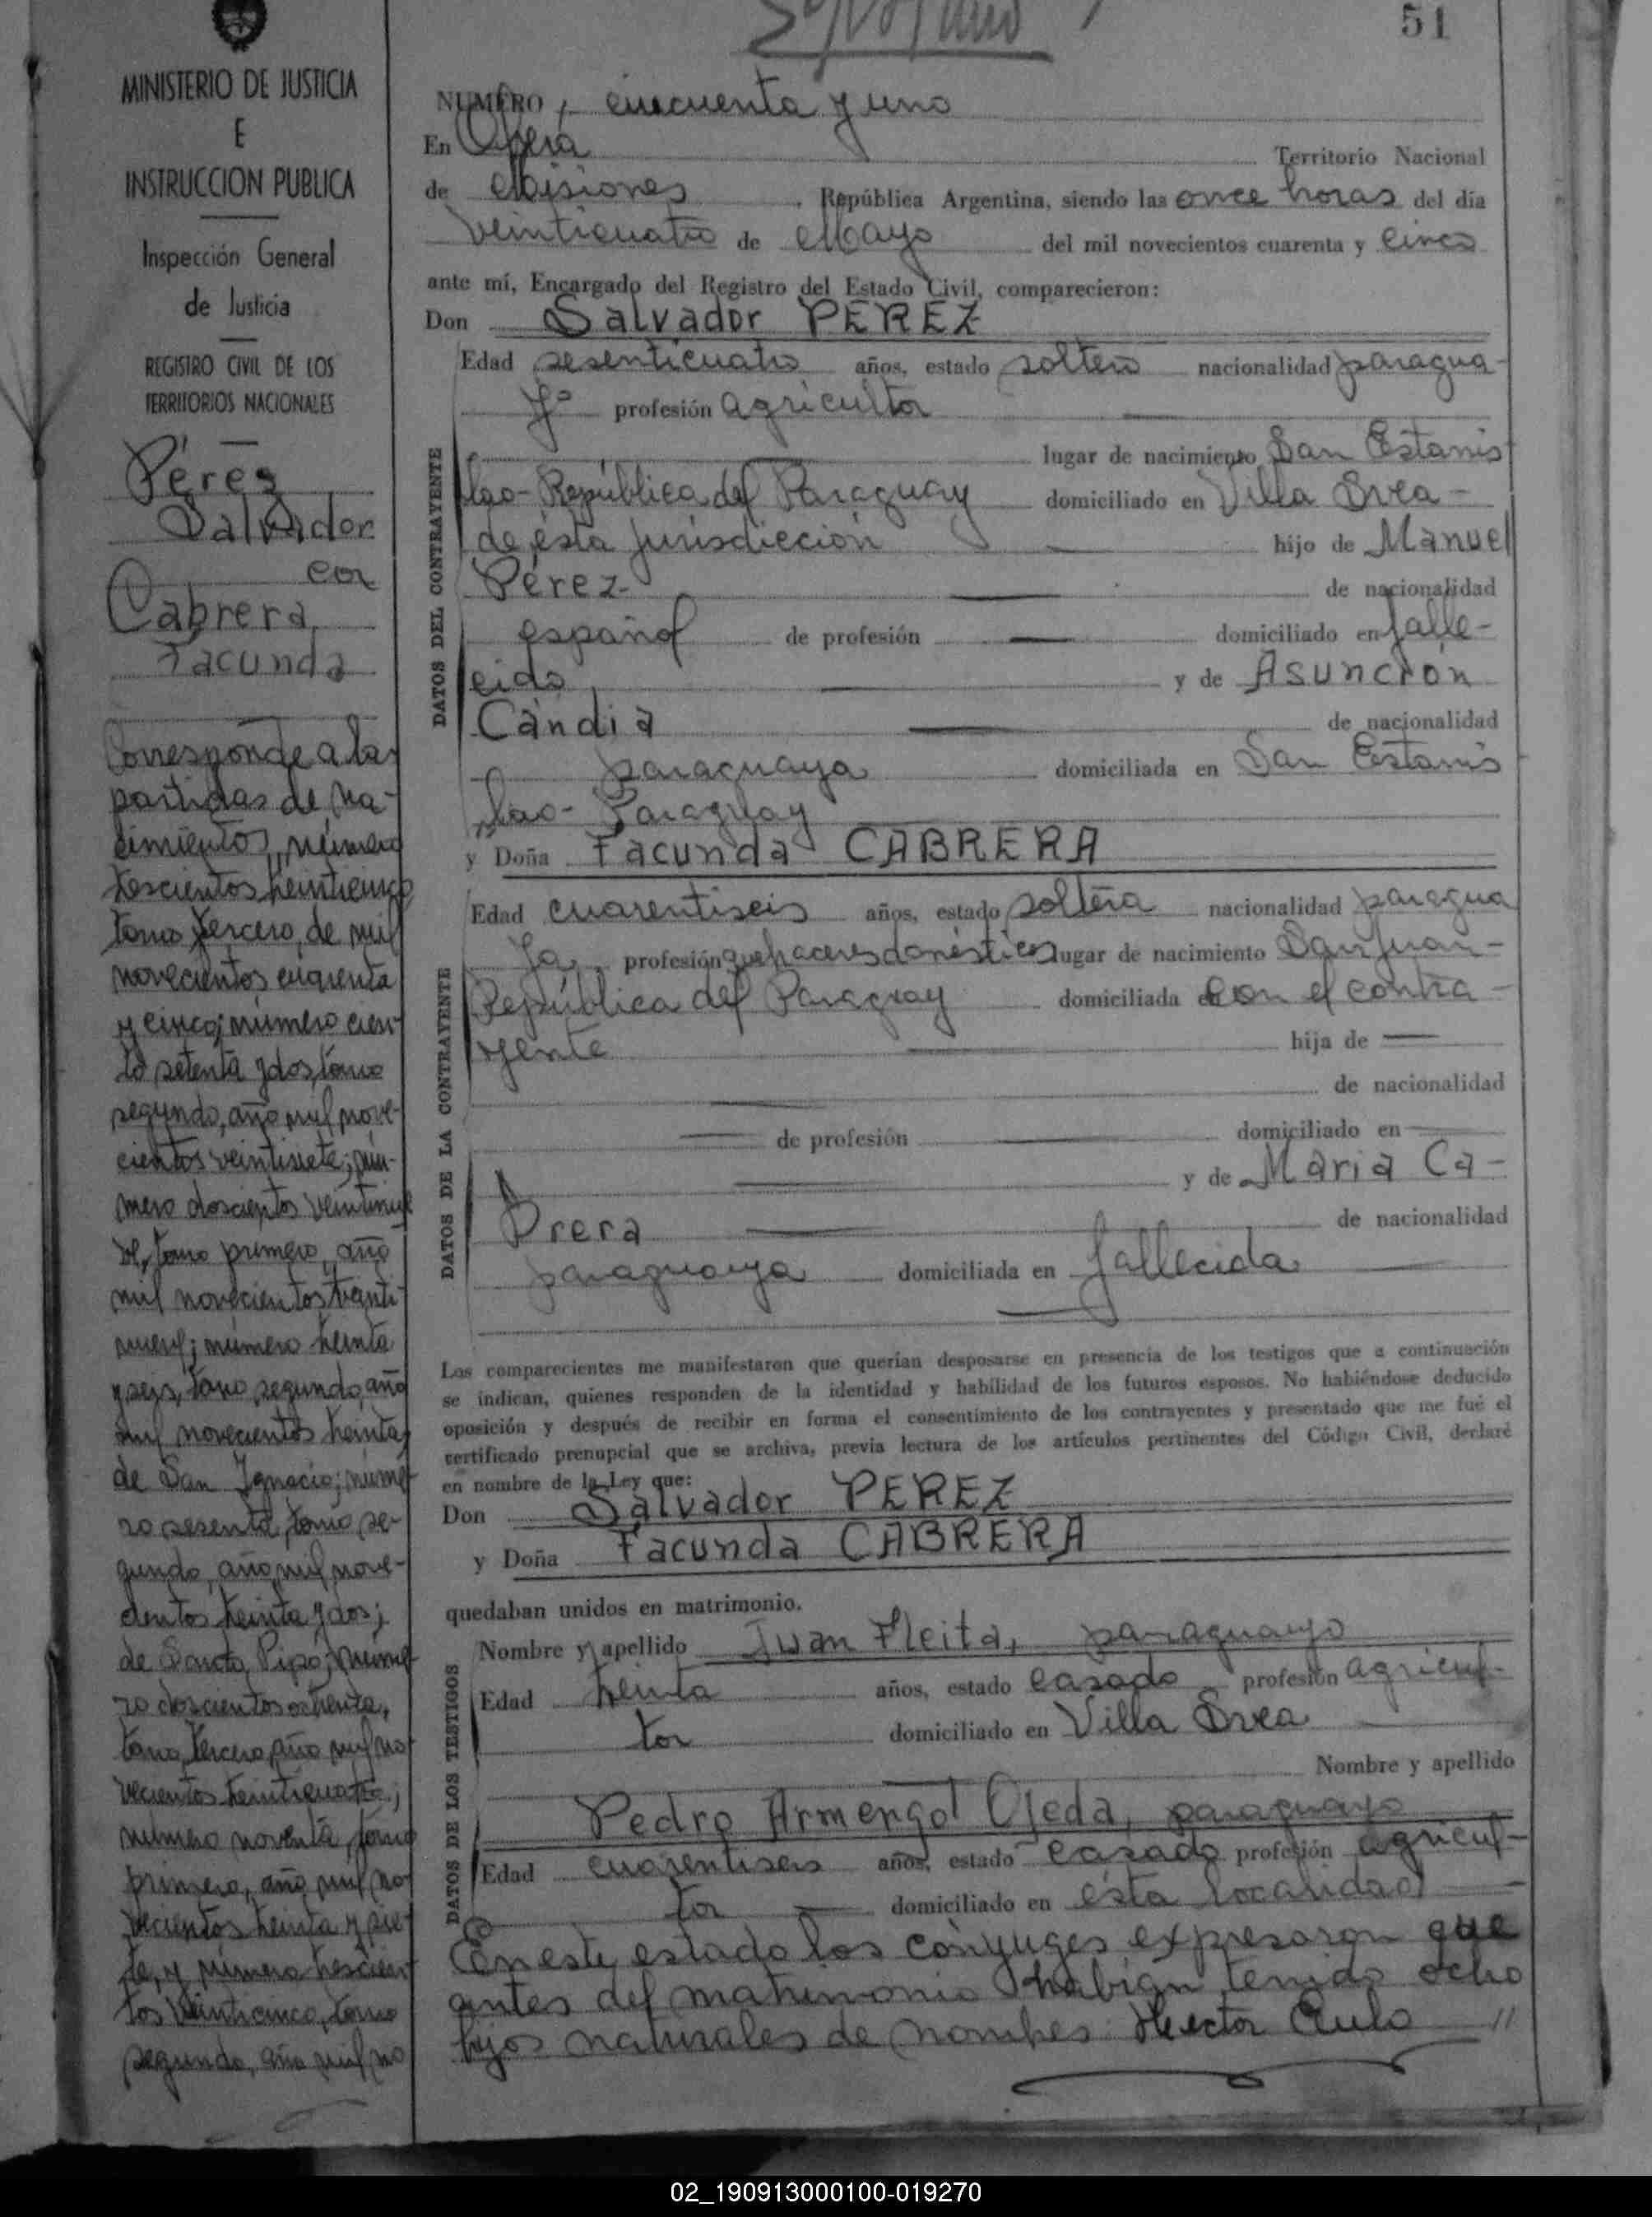 51
MINISTERIO DE JUSTICIA
E
INSTRUCCION PUBLICA
Inspección General
de Justicia
REGISTRO CIVIL DE LOS
TERRITORIOS NACIONALES
Pérez
Salvador
con
Cabrera
Facunda
Corresponde a las
partidas de na-
cimientos, número
trescientos veinticinco
tomo tercero, de mil
novecientos cuarenta
y cinco; número cien-
to setenta y dos, tomo
segundo, año mil nove-
cientos veintisiete; nú-
mero doscientos veintinue
ve, tomo primero, año
mil novecientos veinti-
nueve; número treinta
y seis, tomo segundo, año
mil novecientos treinta,
de San Ignacio; núme-
ro sesenta, tomo se-
gundo, año mil nove-
cientos treinta y dos;
de Santo Pipó; núme-
ro doscientos ochenta,
tomo tercero, año mil no
vecientos treinticuatro;
número noventa, tomo
primero, año mil no
vecientos treinta y sie-
te, y número trescien-
tos veinticinco, tomo
segundo, año mil no
NUMERO, cincuenta y uno
En Oberá Territorio Nacional
de Misiones, República Argentina, siendo las once horas del día
veinticuatro de Mayo del mil novecientos cuarenta y cinco
ante mí, Encargado del Registro del Estado Civil, comparecieron:
Don Salvador PÉREZ
DATOS DEL CONTRAYENTE
Edad sesenticuatro años, estado soltero nacionalidad paragua-
yo profesión agricultor
lugar de nacimiento San Estanis
lao- República del Paraguay domiciliado en Villa Svea-
de ésta jurisdicción hijo de Manuel
Pérez- de nacionalidad
español de profesión domiciliado en falle-
cido y de Asunción
Cándia de nacionalidad
paraguaya domiciliada en San Estanis
lao- Paraguay
y Doña Facunda CABRERA
DATOS DE LA CONTRAYENTE
Edad cuarentiseis años, estado soltera nacionalidad paragua
ya profesión quehaceres domésticos lugar de nacimiento San Juan-
República del Paraguay domiciliada en con el contra-
yente hija de
de nacionalidad
de profesión domiciliado en
y de Maria Ca-
brera de nacionalidad
paraguaya domiciliada en fallecida
Los comparecientes me manifestaron que querían desposarse en presencia de los testigos que a continuación
se indican, quienes responden de la identidad y habilidad de los futuros esposos. No habiéndose deducido
oposición y después de recibir en forma el consentimiento de los contrayentes y presentado que me fué el
certificado prenupcial que se archiva, previa lectura de los artículos pertinentes del Código Civil, declaré
en nombre de la Ley que:
Don Salvador PEREZ
y Doña Facunda CABRERA
quedaban unidos en matrimonio.
DATOS DE LOS TESTIGOS
Nombre y apellido Juan Fleita, paraguayo
Edad treinta años, estado casado profesión agricul-
tor domiciliado en Villa Svea
Nombre y apellido
Pedro Armengol Ojeda, paraguayo
Edad cuarentiseis años, estado casado profesión agricul-
tor domiciliado en ésta localidad
En este estado los cónyuges expresaron que
antes del matrimonio habían tenido ocho
hijos naturales de nombres: Hector Aulo //
02_190913000100-019270